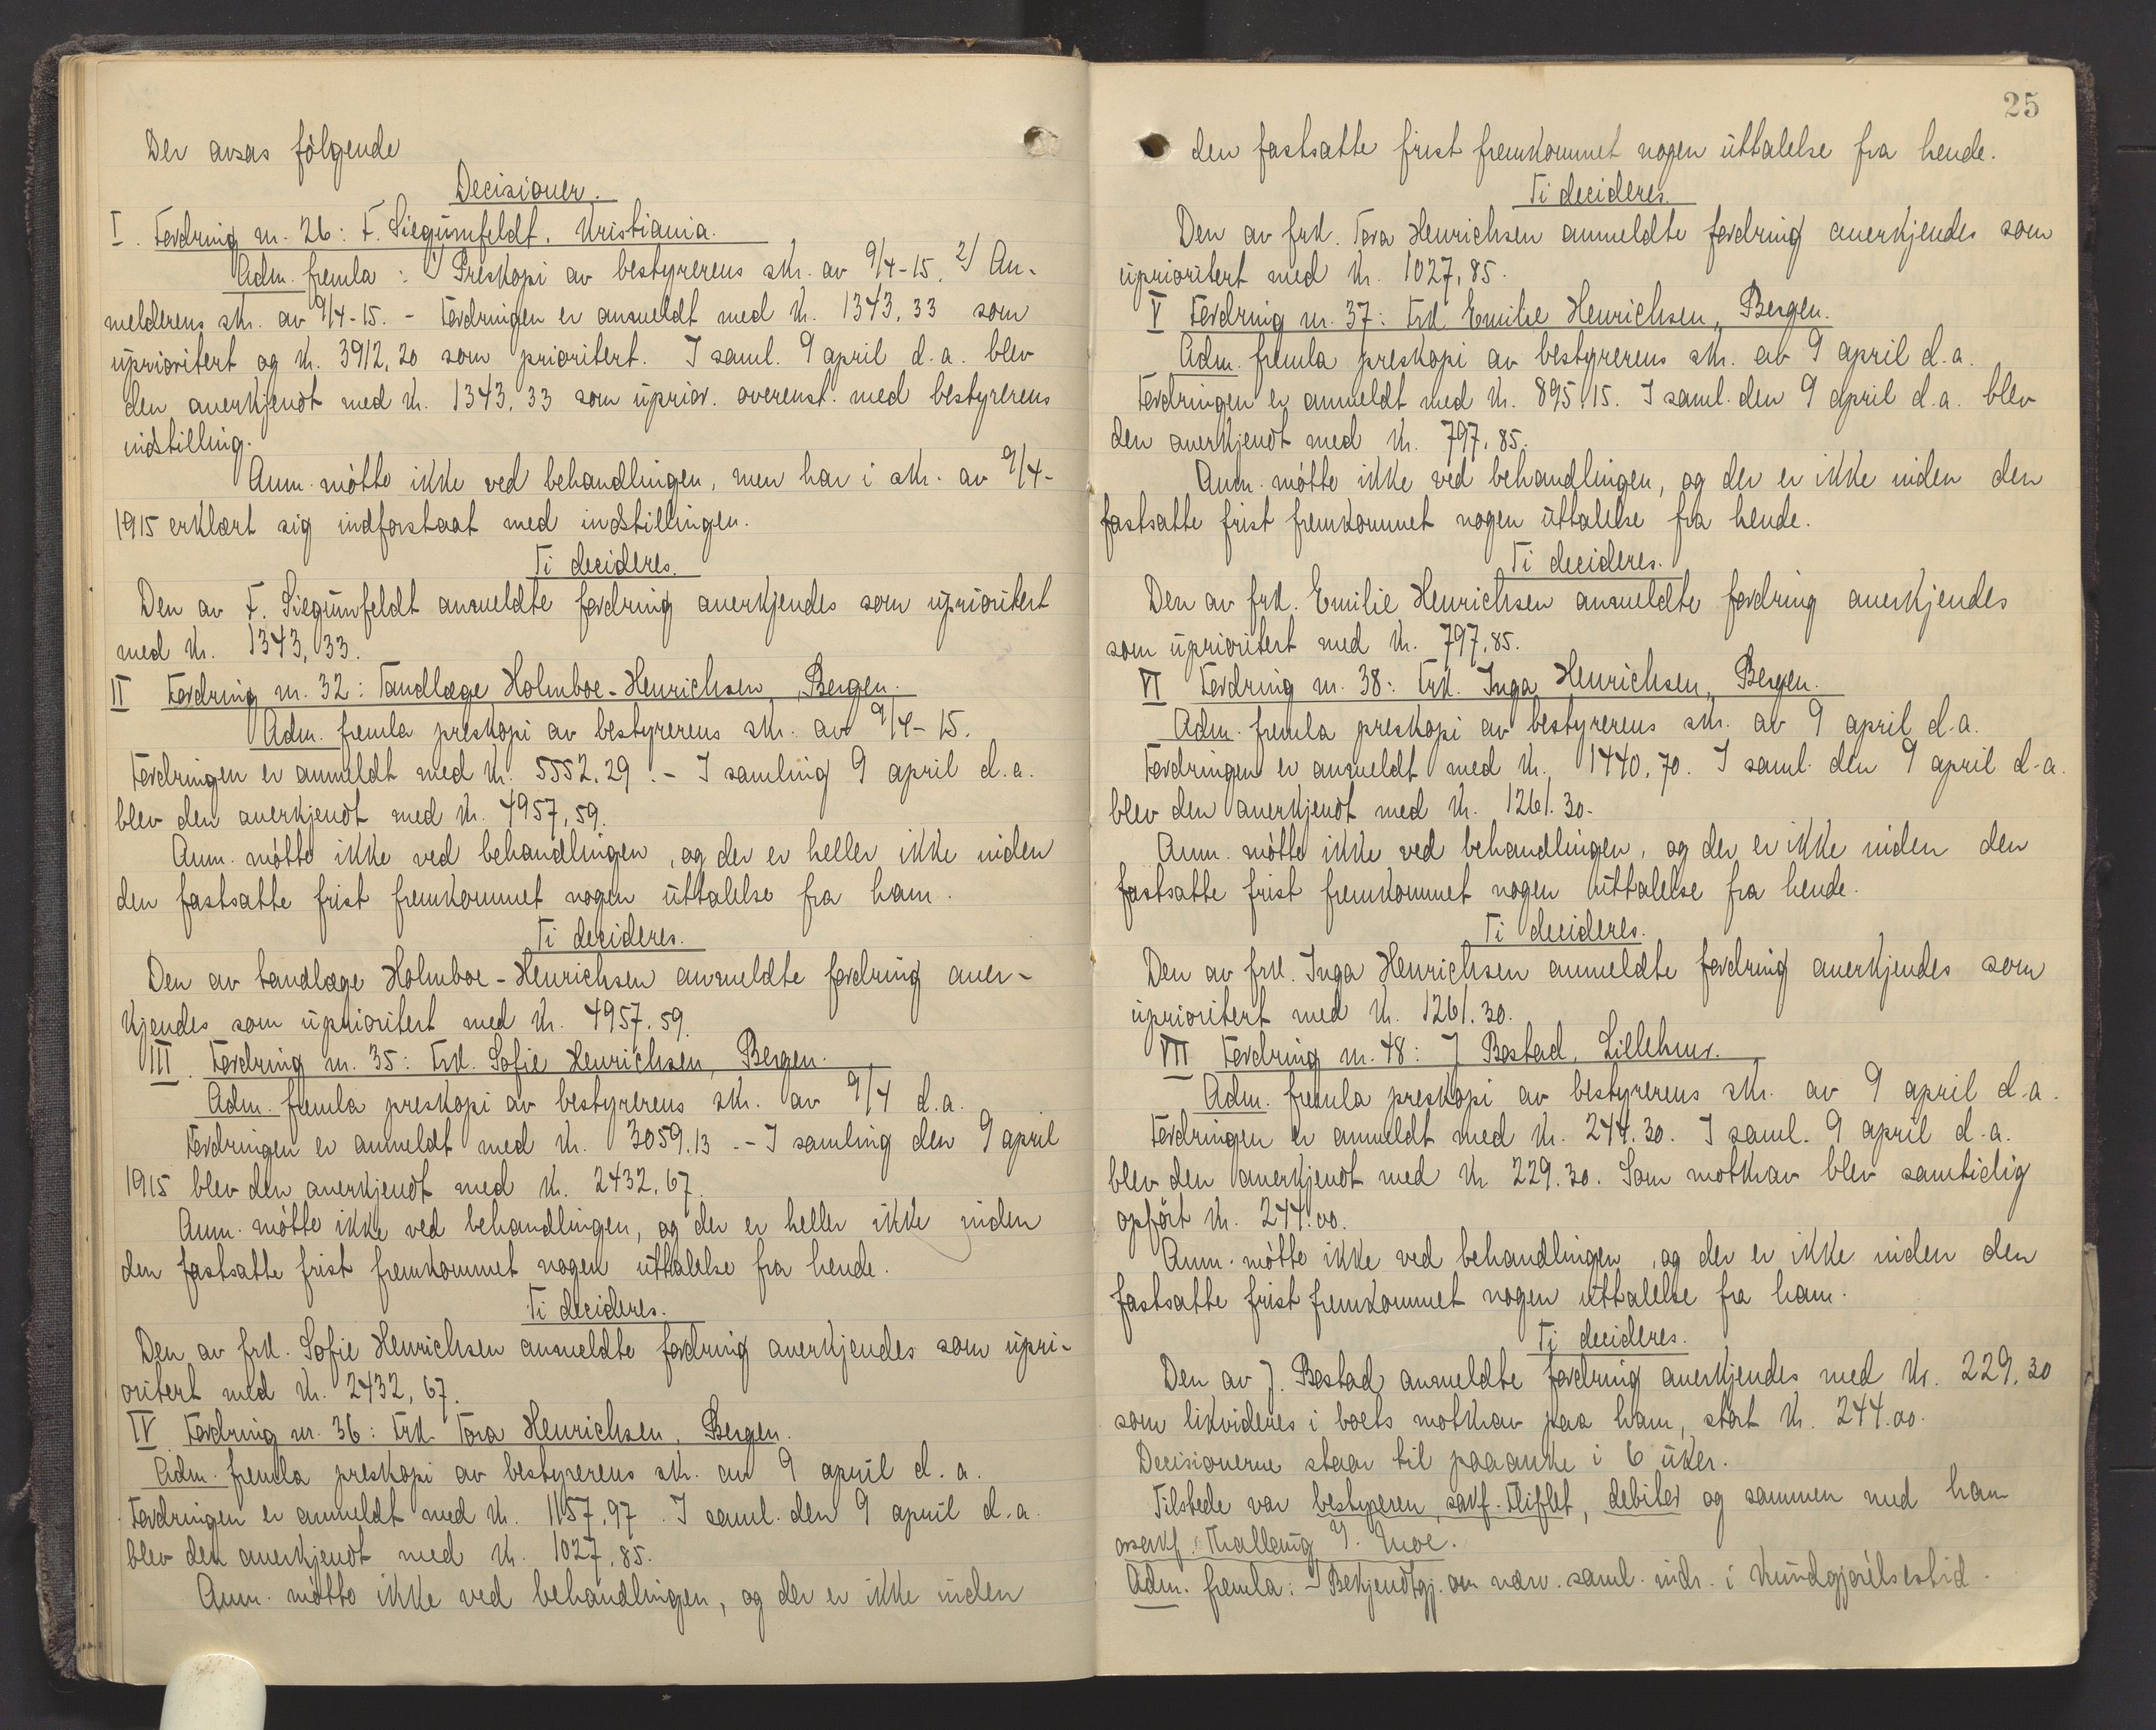 Der avsas følgende
Decisioner.
I. Fordring nr. 26: F. Siegumfeldt. Kristiania.
Adm. fremla: 1/ Preskopi av bestyrerens skr. av 9/4-15. 2/ An-
melderens skr. av 9/4-15. - Fordringen er anmeldt med kr. 1343,33 som
uprioritert og kr. 3912,20 som prioritert. I saml. 9 april d.a. blev
den anerkjendt med kr. 1343,33 som uprior. overenst. med bestyrerens
indstilling.
Anm. møtte ikke ved behandlingen, men har i skr. av 9/4-
1915 erklært sig indforstaat med indstillingen.
Ti decideres.
Den av F. Siegumfeldt anmeldte fordring anerkjendes som uprioritert
med kr. 1343,33.
II Fordring nr. 32: Tandlæge Holmboe-Henrichsen, Bergen.
Adm. fremla preskopi av bestyrerens skr. av 9/4-15.
Fordringen er anmeldt med kr. 5552.29. - I samling 9 april d.a.
blev den anerkjendt med kr. 4957,59.
Anm. møtte ikke ved behandlingen, og der er heller ikke inden
den fastsatte frist fremkommet nogen uttalelse fra ham.
Ti decideres.
Den av tandlæge Holmboe-Henrichsen anmeldte fordring aner-
kjendes som uprioritert med kr. 4957.59.
III. Fordring nr. 35: Frk. Sofie Henrichsen, Bergen.
Adm. fremla preskopi av bestyrerens skr. av 9/4 d.a.
Fordringen er anmeldt med kr. 3059.13. - I samling den 9 april
1915 blev den anerkjendt med kr. 2432,67.
Anm. møtte ikke ved behandlingen, og der er heller ikke inden
den fastsatte frist fremkommet nogen uttalelse fra hende.
Ti decideres.
Den av frk. Sofie Henrichsen anmeldte fordring anerkjendes som upri-
oritert med kr. 2432,67.
IV Fordring nr. 36: Frk. Tora Henrichsen, Bergen.
Adm. fremla preskopi av bestyrerens skr. av 9 april d.a.
Fordringen er anmeldt med kr. 1157,97. I saml. den 9 april d.a.
blev den anerkjendt med kr. 1027,85.
Anm. møtte ikke ved behandlingen, og der er ikke inden
25
den fastsatte frist fremkommet nogen uttalelse fra hende.
Ti decideres.
Den av frk. Tora Henrichsen anmeldte fordring anerkjendes som
uprioritert med kr. 1027,85.
V Fordring nr. 37: Frk Emilie Henrichsen, Bergen.
Adm. fremla preskopi av bestyrerens skr. av 9 april d.a.
Fordringen er anmeldt med kr. 895,15. I saml. den 9 april d.a. blev
den anerkjendt med kr. 797,85.
Anm. møtte ikke ved behandlingen, og der er ikke inden den
fastsatte frist fremkommet nogen uttalelse fra hende.
Ti decideres.
Den av frk. Emilie Henrichsen anmeldte fordring anerkjendes
som uprioritert med kr. 797,85.
VI Fordring nr. 38: Frk. Inga Henrichsen, Bergen.
Adm. fremla preskopi av bestyrerens skr. av 9 april d.a.
Fordringen er anmeldt med kr. 1440,70. I saml. den 9 april d.a.
blev den anerkjendt med kr. 1261.30.
Anm. møtte ikke ved behandlingen, og der er ikke inden den
fastsatte frist fremkommet nogen uttalelse fra hende.
Ti decideres.
Den av frk. Inga Henrichsen anmeldte fordring anerkjendes som
uprioritert med kr. 1261.30.
VII Fordring nr. 48: J Bostad, Lillehmr.
Adm. fremla preskopi av bestyrerens skr. av 9 april d.a.
Fordringen er anmeldt med kr. 244.30. I saml. 9 april d.a.
blev den anerkjendt med kr 229.30. Som motkrav blev samtidig
opført kr. 244.00.
Anm. møtte ikke ved behandlingen, og der er ikke inden den
fastsatte frist fremkommet nogen uttalelse fra ham.
Ti decideres.
Den av J. Bostad anmeldte fordring anerkjendes med kr. 229,30
som likvideres i boets motkrav paa ham, stort kr. 244.00.
Decisionerne staar til paaanke i 6 uker.
Tilstede var bestyreren, sakf. Fliflet, debitor og sammen med ham
Y. Moe.
Adm. fremla: 1/ Bekjendtgj. om nærv. saml. indr. i kundgjørelsestid.